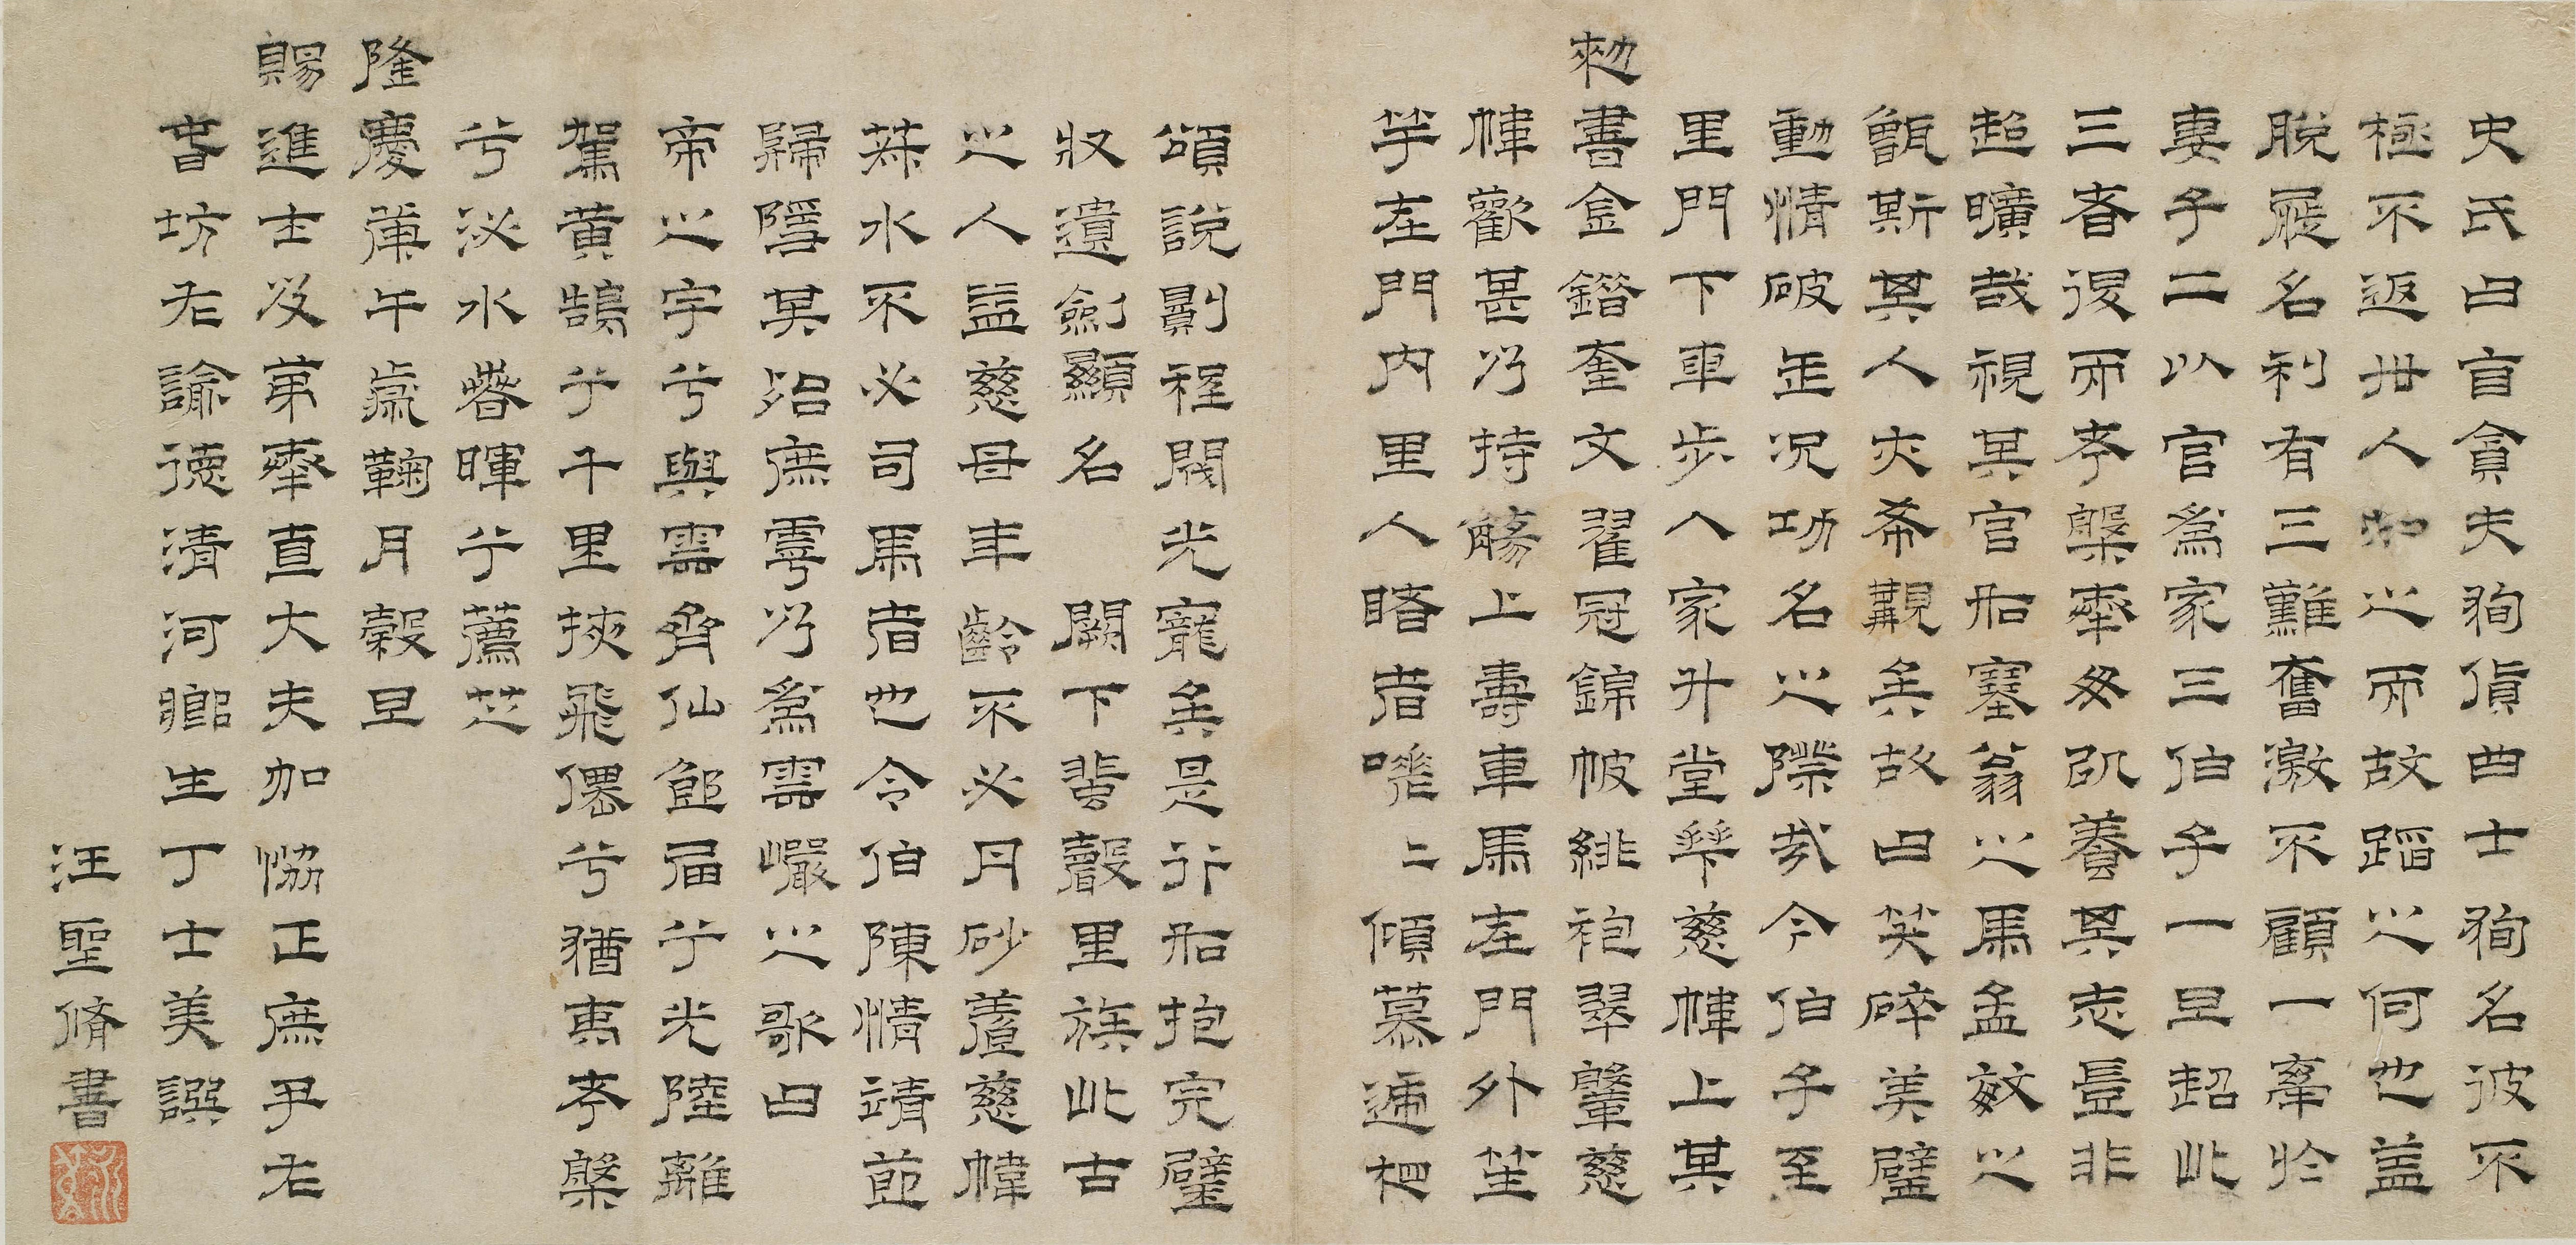 史氏曰盲貪夫狥貨曲士狥名彼不
極不返丗人知之而故蹈之何也盖
脫屣名利有三難奮激不顧一牽於
妻子二以官爲家三伯子一旦超此
三者復而考槃率矣砭養其志豈非
超曠哉視其官如塞翁之馬孟效之
甑斯其人亦希覯矣故曰笑碎美璧
動情破缶况功名之際哉今伯子至
里門下車步入家升堂拜慈幃上其
勑書金鐕奎文翟冠錦帔緋袍翠鞶慈
幃歡甚乃持觴上壽車馬左門外笙
竽左門内里人睹者嘡〻傾慕遞相
頌說剻裎闊光寵矣是行如抱完璧
收遺劍顯名闕下蜚聲里族此古
之人益慈母年齡不必丹砂著慈幃
菽水不必司馬者也令伯陳情靖節
歸隱其殆庶雩乃爲雲巗之歌曰
帝之宇兮與雲齊仙郎屆兮光陸離
駕黄鵠兮千里挾飛僊兮猶夷考槃
兮泌水馨暉兮薦芝
隆慶庚午歲鞠月穀旦
賜進士及第奉直大夫加恊正庶尹右
春坊右諭德清河郷生丁士美譔
汪聖脩書